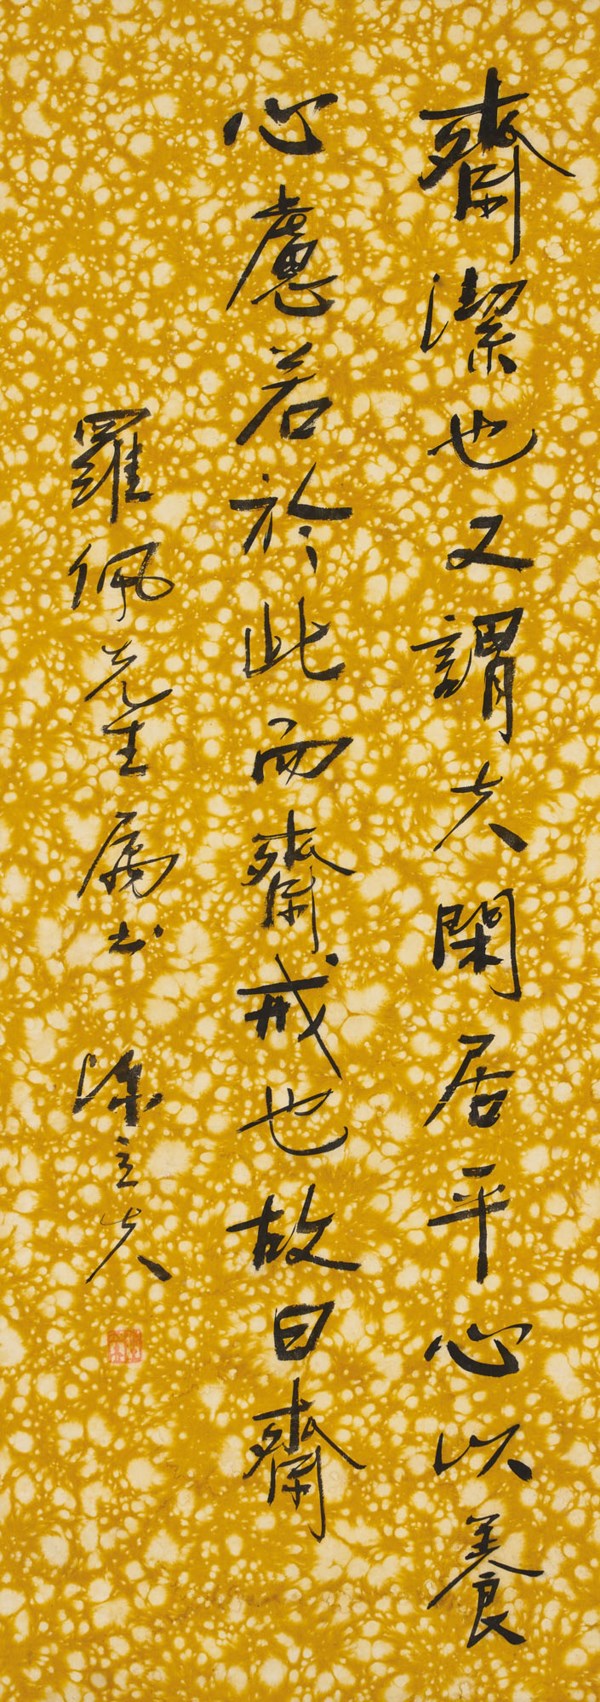 齋潔也又謂夫閑居平心以養
心慮若於此而齋戒也故曰齋
羅佩先生属书 陈立夫